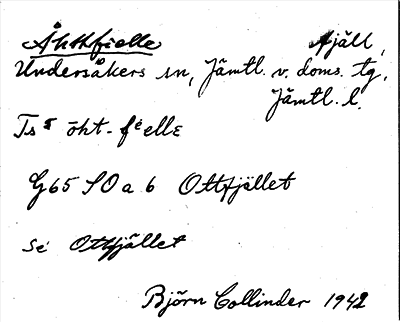 Åhthfjelle fjäll,
Undersåkers sn, Jämtl. v. doms. tg,
Jämtl. l.
Ts ŏht-fĕelle
G65 SO a 6 Ottfjället
se Ottfjället
Björn Collinder 1942